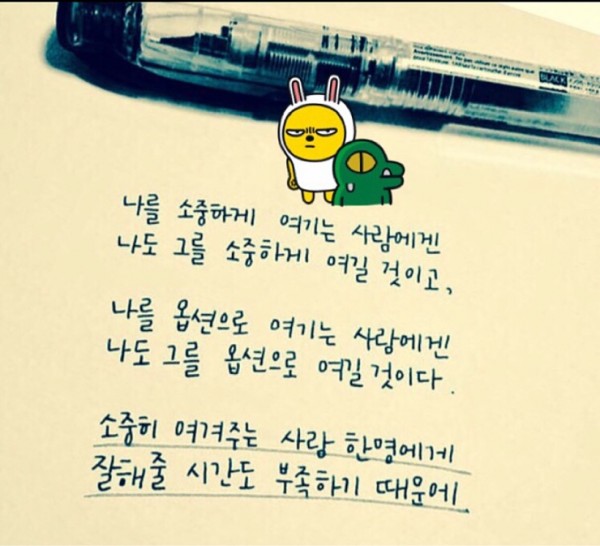 BLACK
나를 소중하게 여기는 사람에겐
나도 그를 소중하게 여길 것이고,
나를 옵션으로 여기는 사람에겐
나도 그를 옵션으로 여길 것이다.
소중히 여겨주는 사람 한명에게
잘해줄 시간도 부족하기 때문에.